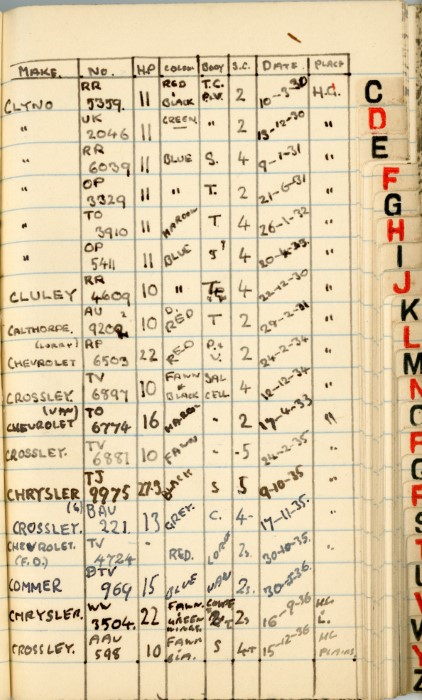 MAKE. No. H.P COLOUR BODY S.C. DATE. PLACE
CLYNO RR 5359. 11 RED & BLACK T.C. 2 10-3-30 H.G.
" UK 2046 11 GREEN " 2 13-12-30 "
" RR 6039 11 BLUE S. 4 9-1-31 "
" OP 3329 11 " T. 2 21-6-31 "
" TO 3910 11 MAROON T 4 26-1-32 "
" OP 5411 11 BLUE S? 4 "
CLULEY RR 4609 10 " 4 22-12-30 "
CALTHORPE. AU 10 RED T 2 "
(LORRY) CHEVROLET RP 6503 22 RED 2 24-2-34 "
CROSSLEY. TV 6897 10 FAWN & BLACK SAL CELL 4 12-12-34 "
(VAN) CHEVROLET TO 6774 16 MAROON " 2 19-4-33 "
CROSSLEY. TV 6881 10 FAWN " 5 24-2-35 "
CHRYSLER TJ 9975 27.3 BLACK S 5 9-10-35 "
CROSSLEY. BAU 221. 13 GREY. C. 4 17-11-35. "
CHEVROLET. (F.O.) TV 4724 - RED. LORRY 2s 30-10-35. "
COMMER BTV 969 15 BLUE VAN 2s. 30-5-36. "
CHRYSLER. WW 3504. 22 FAWN. GREEN WINGS. COUPE 2s 16-9-36 HG L.
CROSSLEY. AAU 598 10 FAWN BLA. S 4 15-12-36 HG PLAINS
C
D
E
F
G
H
I
J
K
L
M
N
O
P
Q
R
S
T
U
V
W
Y
Z